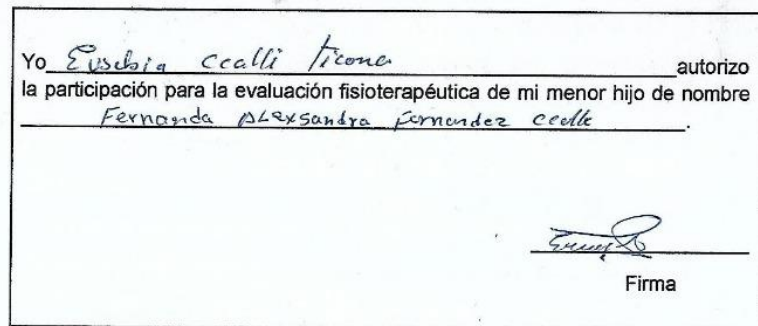 Yo Eusebia Ccalli Ticona autorizo
la participación para la evaluación fisioterapéutica de mi menor hijo de nombre
Fernanda ALexsandra Fernandez Ccalli.
Firma